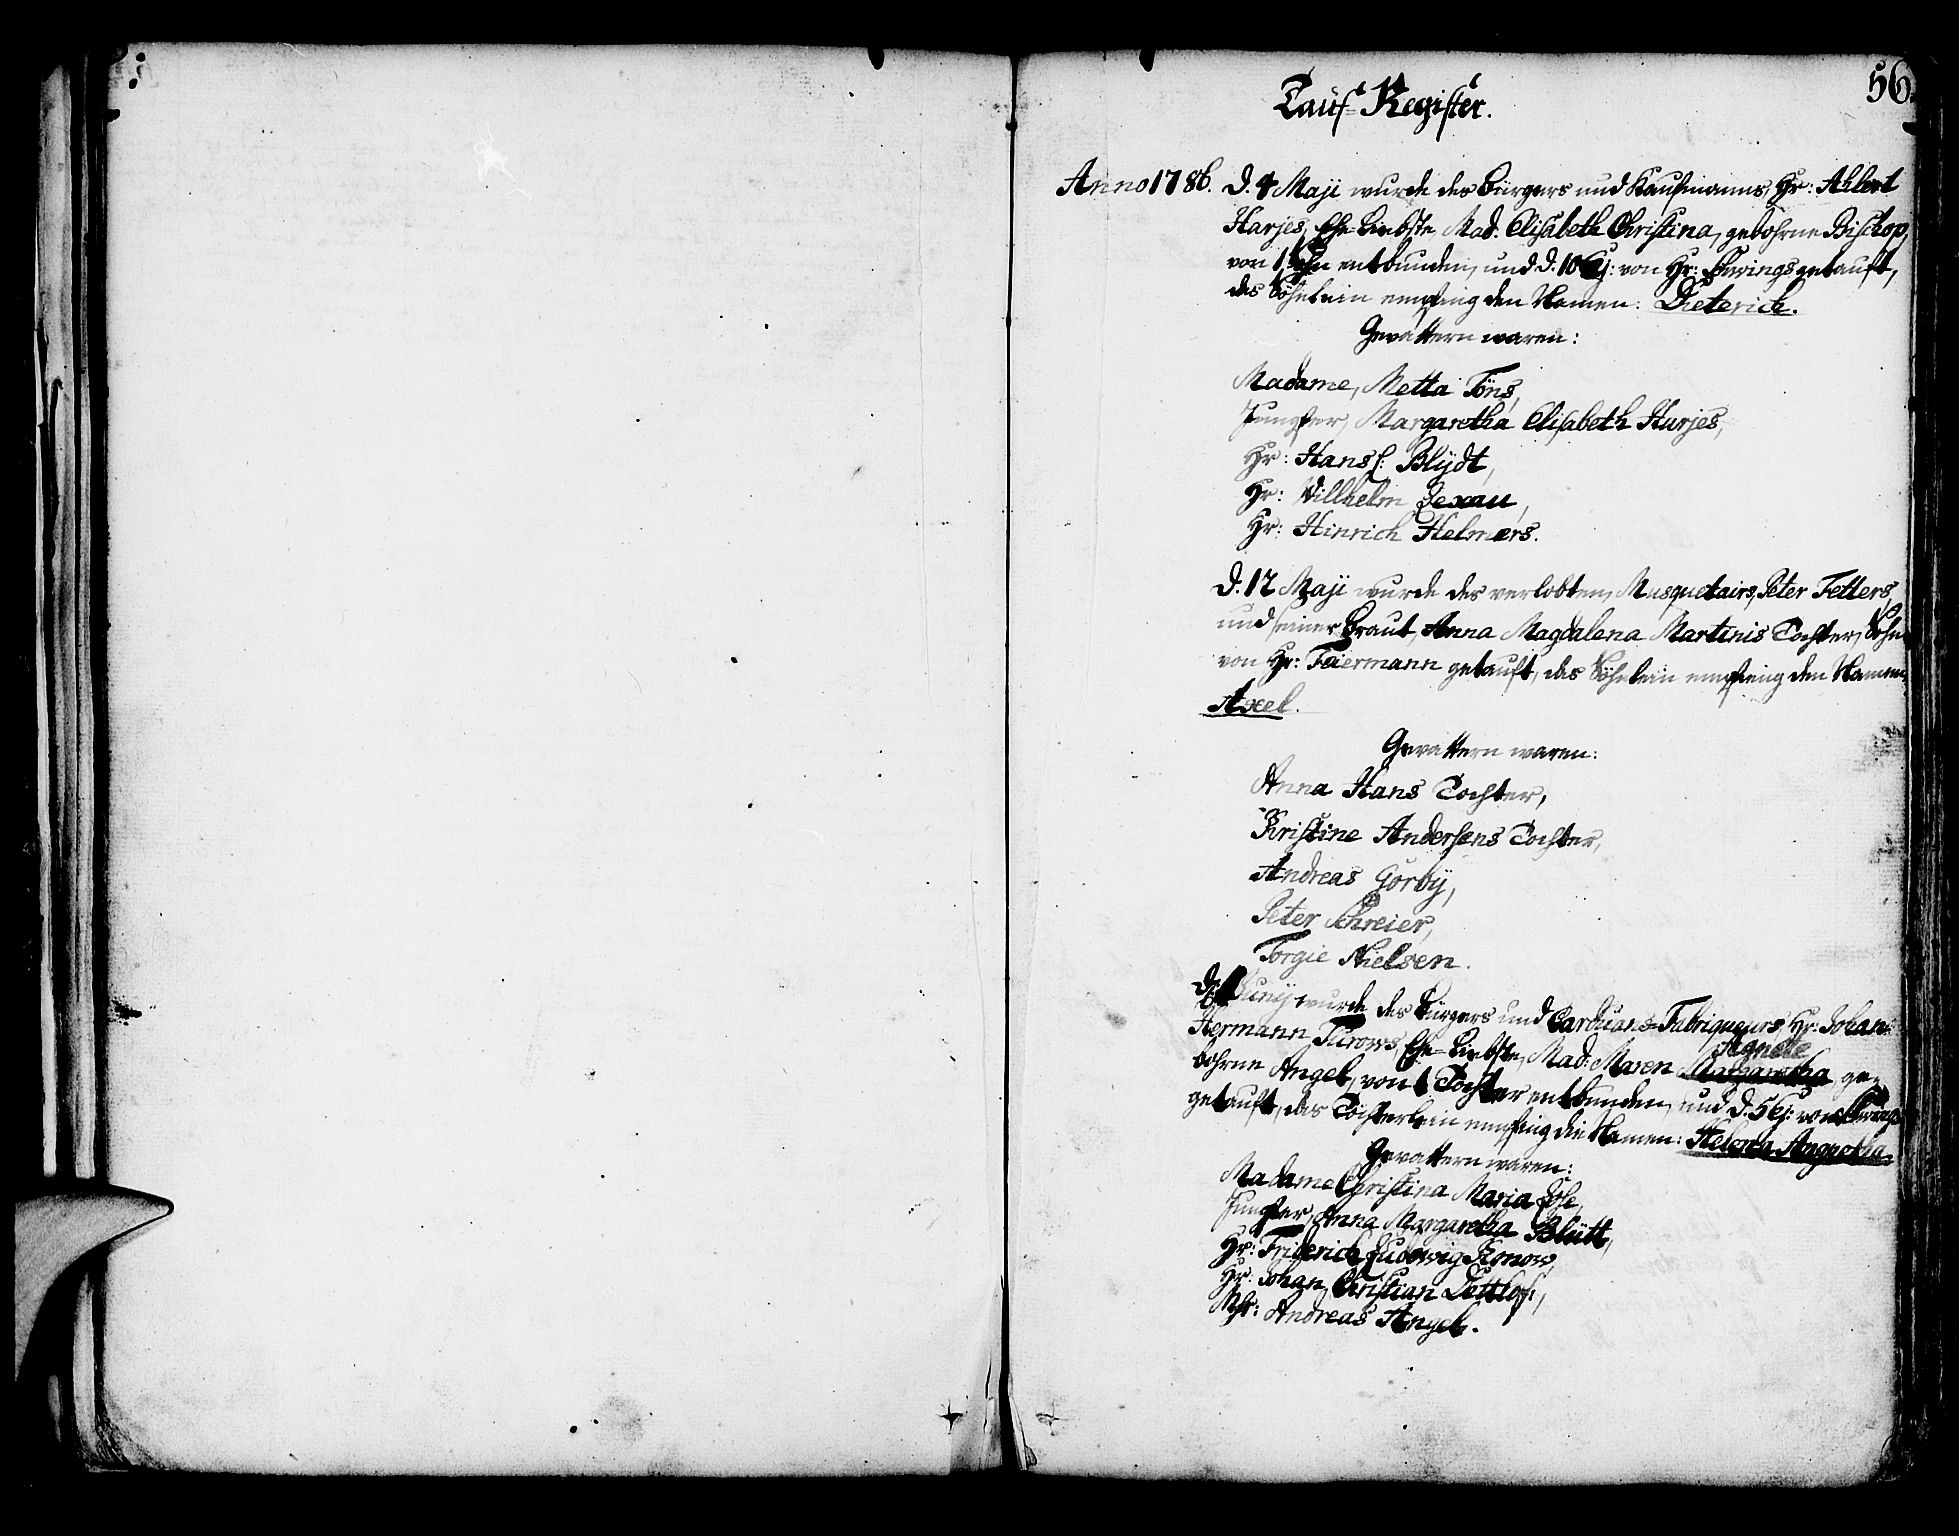 56.
Tauf-Register.
Anno 1786. D. 4 Maji wurde des Bürgers und Kaufmanns, Hr: Ahlert
Harjes, Ehe-Liebste, Mad. Elisabeth Christina, gebohrne Bischop,
von 1 Sohn entbunden, und d. 10 ej: von Hr: getauft,
das Söhnlein empfing den Namen: Dieterich.
Gevattern waren:
Madame, Metta Töns,
Jungfer, Margaretha Elisabeth Harjes,
Hr: Hans C: Blÿdt,
Hr: Willhelm Jexau,
Hr: Hinrich Helmers.
D. 12 Maji wurde des verlobten, Musquetairs, Peter Fetters,
und seiner Braut, Anna Magdalena Martinis Tochter, Sohn
von Hr: Feiermann getauft, das Söhnlein empfieng den Namen,
Axel.
Gevattern waren:
Anna Hans Tochter,
Kristine Andersens Tochter,
Andreas Görbÿ,
Peter Schreier,
Torgie Nielsen.
D. Junÿ wurde des Bürgers und Carduans-Fabriqueurs, Hr: Johan
Hermann Turows, Ehe-Liebste, Mad: Maren Margaretha, ge-
Agnete
bohrne Angel, von 1 Tochter entbunden, und d. 5 ej: von
getauft, das Töchterlein empfing die Namen: Helena Angnetha.
Gevattern waren:
Madame Christina Maria
Jungfer, Anna Margaretha Blütt,
Hr: Friderich Ludowig Konow,
Hr: Johan Christian Dettlof,
Mstr: Andreas Angel.